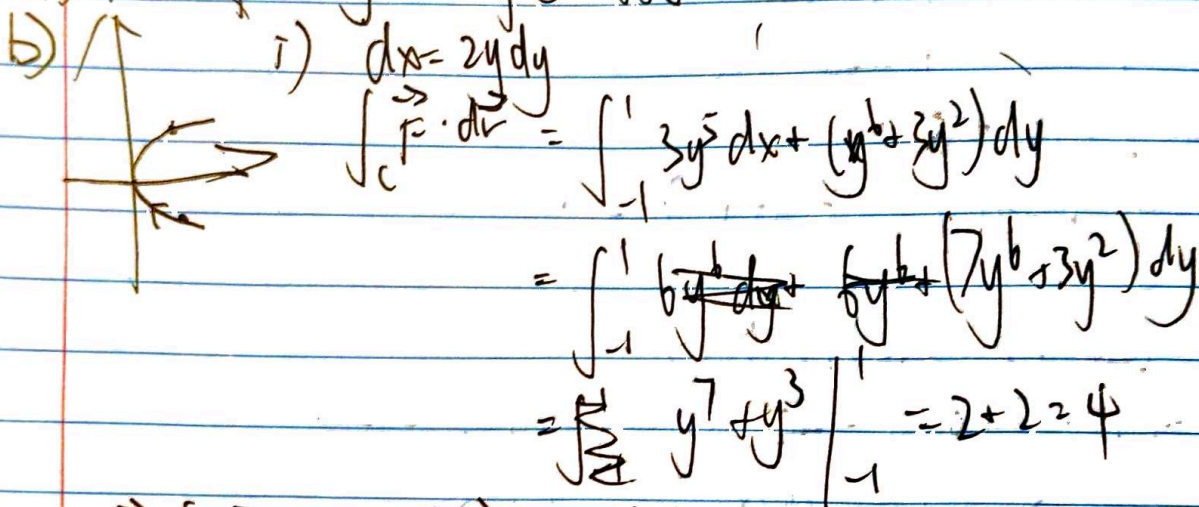 b) i) dx = 2y dy
∫_C F⃗ · dr⃗ = ∫_{-1}^{1} 3y^5 dx + (y^6 + 3y^2) dy
= ∫_{-1}^{1} (7y^6 + 3y^2) dy
= y^7 + y^3 |_{-1}^{1} = 2 + 2 = 4